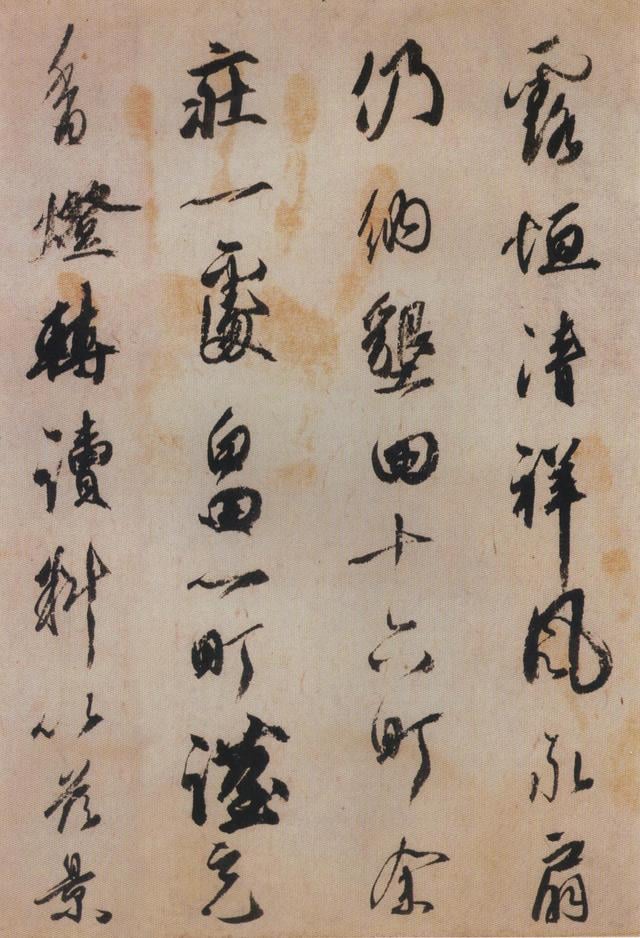 露恒清祥風永扇
仍納墾田十六町余
荘一處畠一町謹充
香燈轉讀料以茲景